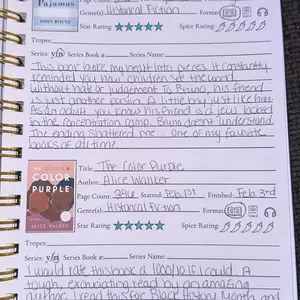 Pajamas
JOHN BOYNE
Page Count:
Genre(s): Historical Fiction Format:
Spice Rating:
Tropes:
Series: y/n Series Book #: Series Name:
This book tore my heart into pieces. It constantly
reminded you how children see the world
without hate or judgement. To Bruno, his friend
is just another person. A little boy just like him.
As an adult, you know his friend is a jew locked
in the concentration camp. Bruno doesn't understand.
The ending shattered me... One of my favorite
books of all time.
THE COLOR PURPLE
ALICE WALKER
Title: The Color Purple
Author: Alice Walker
Page Count: Started: Feb. 1st Finished: Feb. 3rd
Genre(s): Historical Fiction Format:
Spice Rating:
Tropes:
Series: y/n Series Book #: Series Name:
I would rate this book a 1000/10 if I could. A
tough, excruciating read by an amazing
author. I read this for Black History Month and